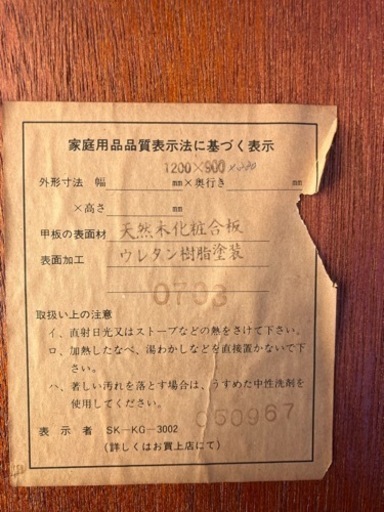 家庭用品品質表示法に基づく表示
1200×900×
外形寸法 幅 mm×奥行き mm
×高さ mm
甲板の表面材 天然木化粧合板
表面加工 ウレタン樹脂塗装
0793
取扱い上の注意
イ、直射日光又はストーブなどの熱をさけて下さい。
ロ、加熱したなべ、湯わかしなどを直接置かないで下
さい。
ハ、著しい汚れを落とす場合は、うすめた中性洗剤を
使用してください。
050967
表示者 SK-KG-3002
(詳しくはお買上店にて)